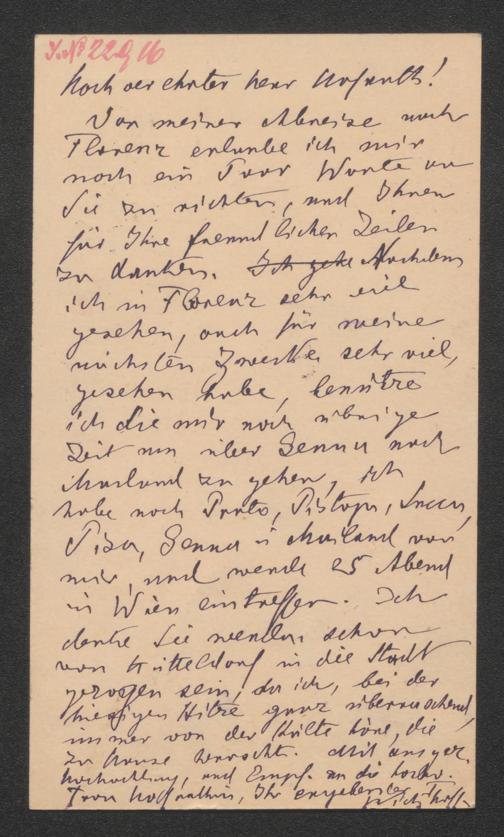 I.N. 22916
Hochverehrter Herr Hofrath!
Vor meiner Abreise nach
Florenz erlaube ich mir
noch ein Paar Worte an
Sie zu richten, und Ihnen
für Ihre freundlichen Zeilen
zu danken. Ich gehe Nachdem
ich in Florenz sehr viel
gesehen, auch für meine
nächsten Zwecke sehr viel,
gesehen habe, benütze
ich die mir noch übrige
Zeit um über Genua nach
Mailand zu gehen, ich
habe noch Prato, Pistoja, Lucca,
Pisa, Genua u Mailand vor
mir, und werde 25 Abend
in Wien eintreffen. Ich
denke Sie werden schon
von Hütteldorf in die Stadt
gezogen sein, da ich, bei der
hiesigen Hitze ganz überraschend,
immer von der Kälte höre, die
zu Hause herrscht. Mit ausgez.
Hochachtung, und Empf. an die hochv.
Frau Hofräthin, Ihr ergebenster